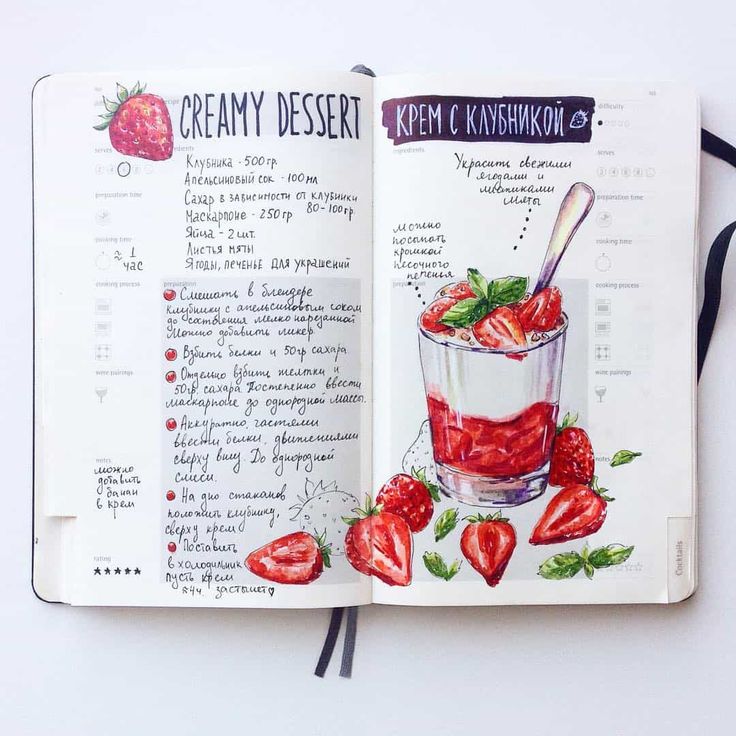 recipe
CREAMY DESSERT
serves
ingredients
Клубника - 500гр
Апельсиновый сок - 100мл
Сахар в зависимости от клубники
80-100гр.
Маскарпоне - 250гр
Яйца - 2шт.
Листья мяты
Ягоды, печенье для украшений
preparation time
cooking time
≈ 1
час
cooking process
wine pairings
preparation
Смешать в блендере
клубнику с апельсиновым соком
до состояния мелко нарезанной
Можно добавить ликер.
Взбить белки и 50гр сахара
Отдельно взбить желтки и
50гр. сахара. Постепенно ввести
маскарпоне до однородной массы.
Аккуратно, частями
ввести белки, движениями
сверху вниз. До однородной
смеси.
На дно стаканов
положить клубнику,
сверху крем
Поставить
в холодильник
пусть крем
≈4ч. застынет♡
notes
можно
добавить
банан
в крем
rating
★★★★★
КРЕМ С КЛУБНИКОЙ
ingredients
Украсить свежими
ягодами и
листиками
мяты
можно
посыпать
крошкой
песочного
печенья
preparation
difficulty
serves
preparation time
cooking time
cooking process
wine pairings
notes
Cocktails